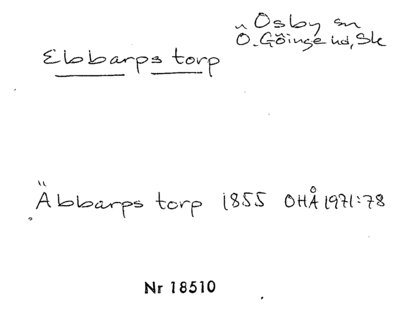 Osby sn
Ebbarps torp Ö. Göinge hd, Sk
Äbbarps torp 1855 OHÅ 1971:78
Nr 18510